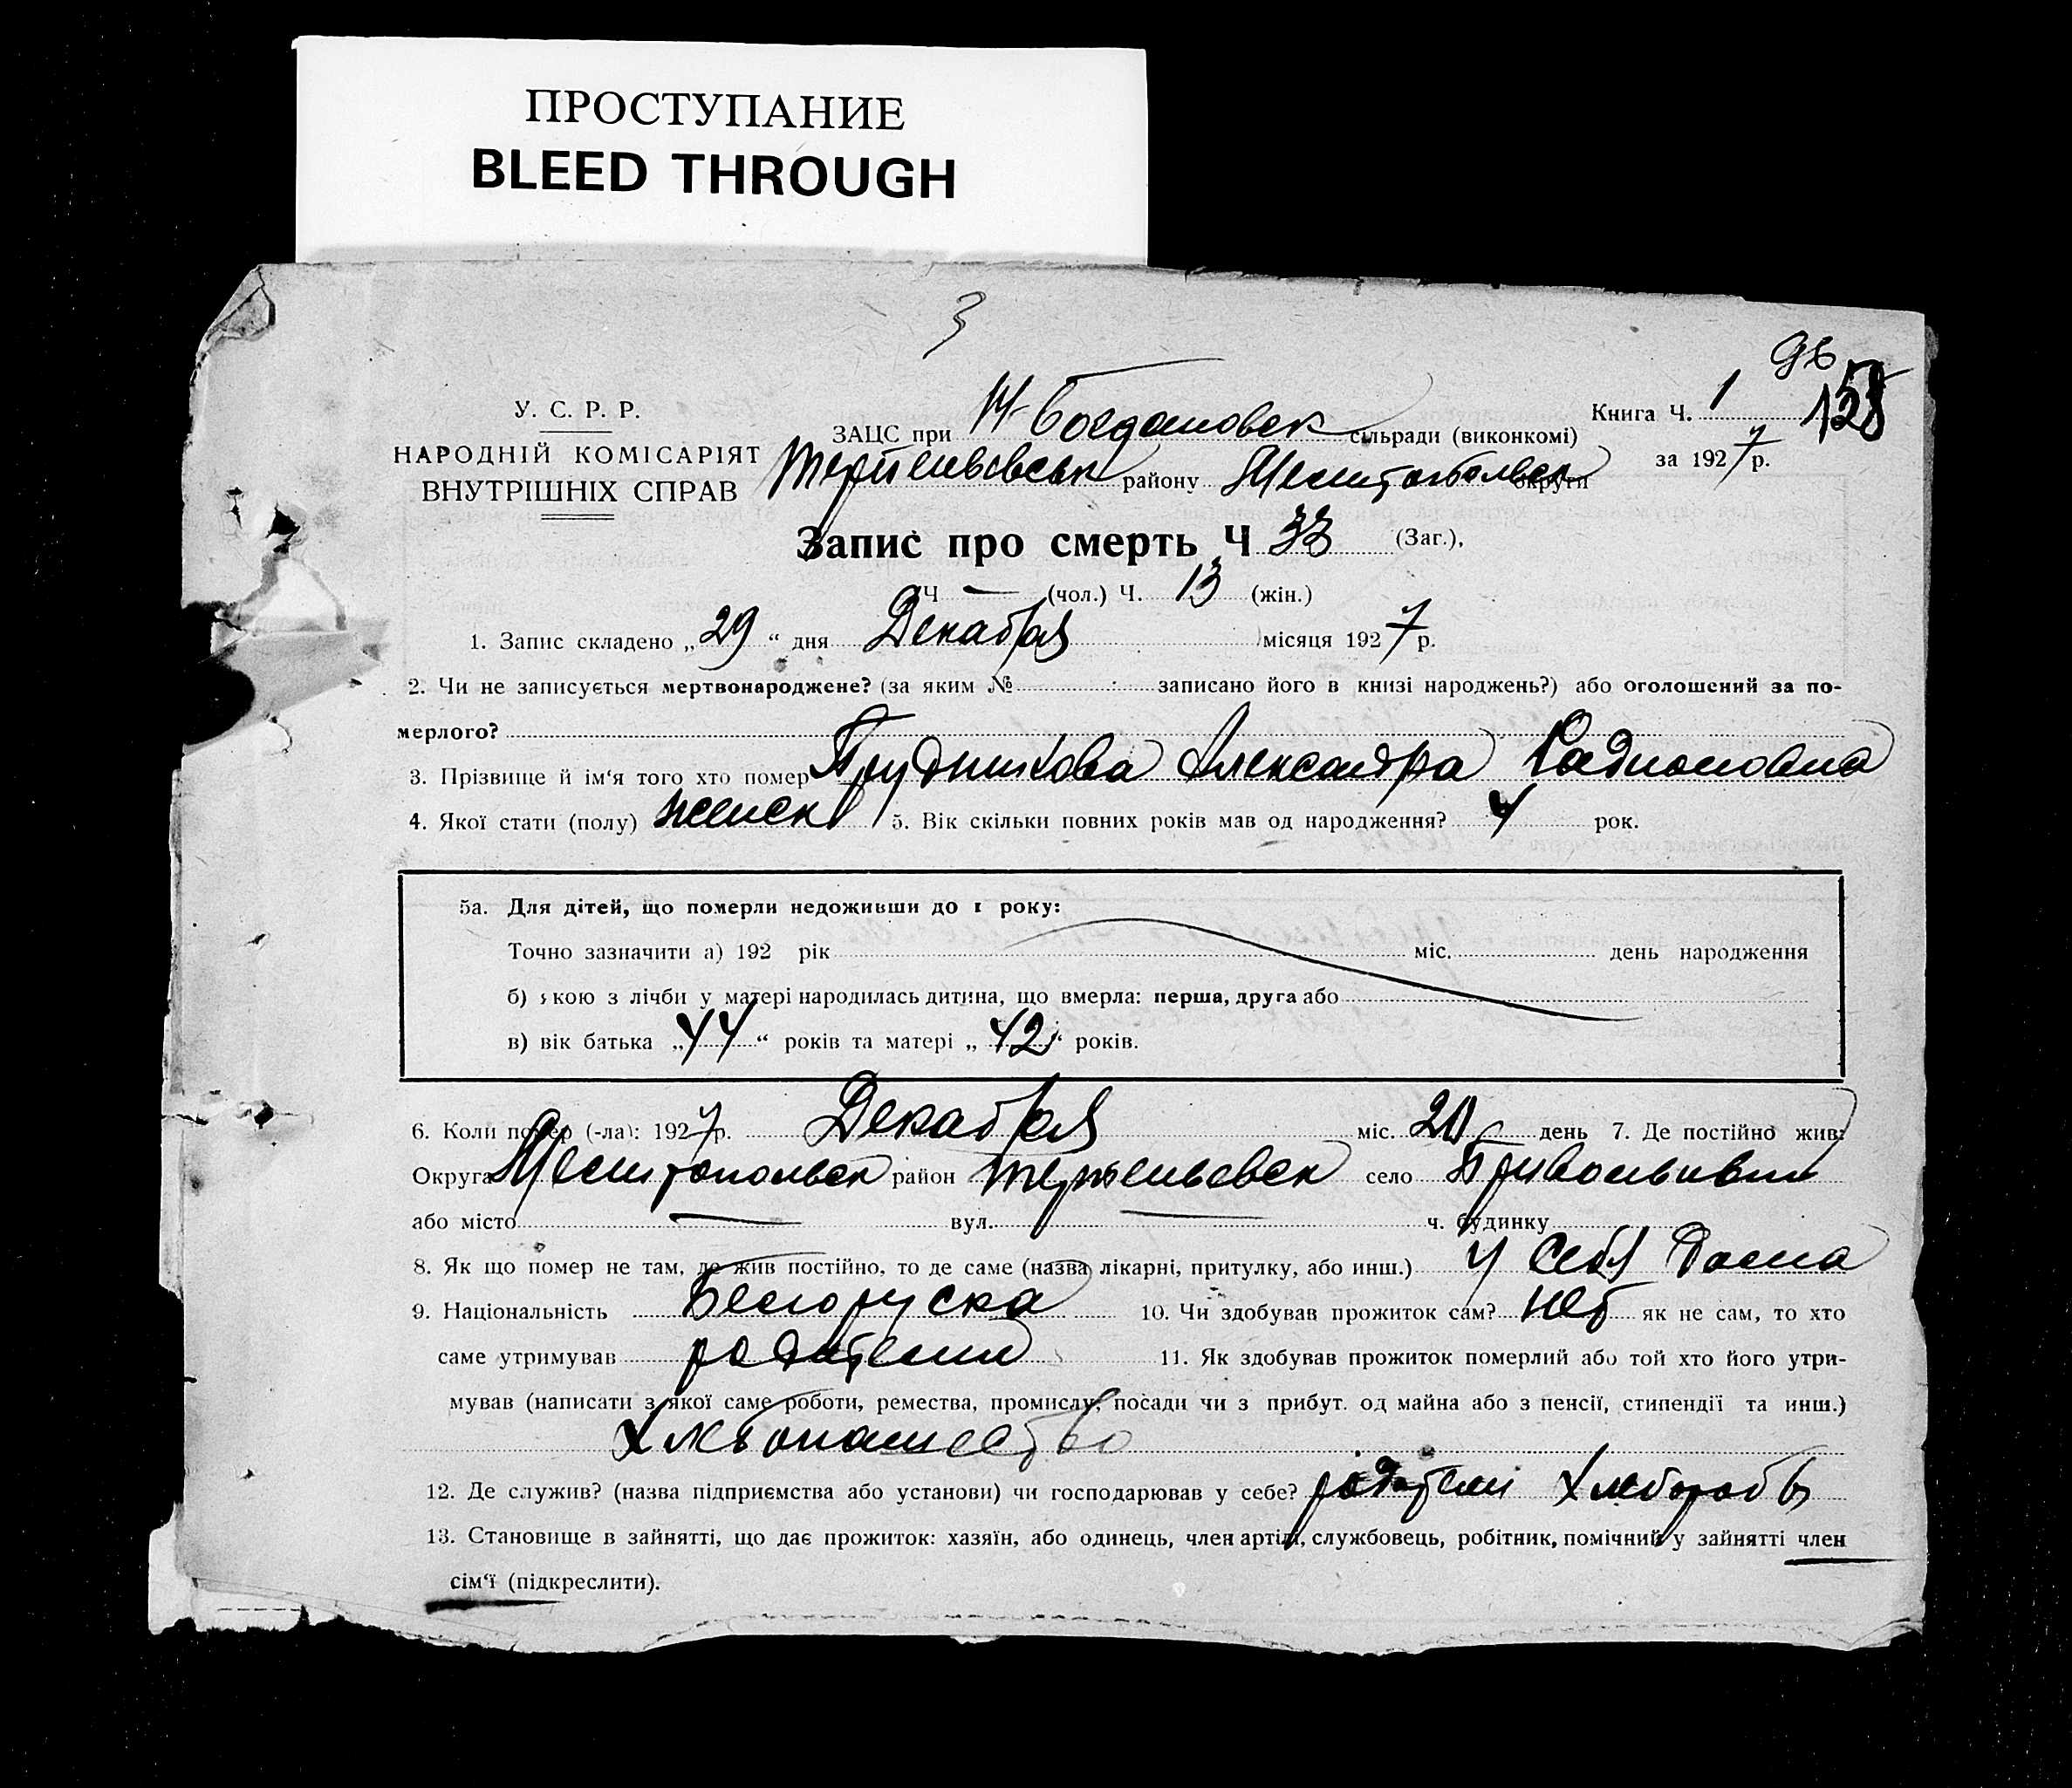 ПРОСТУПАНИЕ
BLEED THROUGH
3
98
У. С. Р. Р.
НАРОДНІЙ КОМІСАРІЯТ
ВНУТРІШНІХ СПРАВ
Книга Ч. 1
за 1927 р.
ЗАЦС при Н-Богдановск сільради (виконкомі)
району округи
Запис про смерть Ч 33 (Заг.),
Ч — (чол.) Ч. 13 (жін.)
1. Запис складено „29“ дня Декабря місяця 1927 р.
2. Чи не записується мертвонароджене? (за яким № записано його в книзі народжень?) або оголошений за по-
мерлого?
3. Прізвище й ім‘я того хто помер Прудникова Александра Радионовна
4. Якої стати (полу) женск 5. Вік скільки повних років мав од народження? 4 рок.
5а. Для дітей, що померли недоживши до 1 року:
Точно зазначити а) 192 рік міс. день народження
б) якою з лічби у матері народилась дитина, що вмерла: перша, друга або
в) вік батька „44“ років та матері „42“ років.
6. Коли помер (-ла): 1927 р. Декабря міс. день 7. Де постійно жив:
Округа Мелитопольск район село
або місто — вул. — ч. будинку
8. Як що помер не там, де жив постійно, то де саме (назва лікарні, притулку, або инш.) у себя дома
9. Національність Белоруска 10. Чи здобував прожиток сам? нет як не сам, то хто
саме утримував родители 11. Як здобував прожиток померлий або той хто його утри-
мував (написати з якої саме роботи, ремества, промислу, посади чи з прибут. од майна або з пенсії, стипендії та инш.)
Хлебопашество
12. Де служив? (назва підприємства або установи) чи господарював у себе? родители Хлеборобы
13. Становище в зайнятті, що дає прожиток: хазяїн, або одинець, член артілі, службовець, робітник, помічний у зайнятті член
сім‘ї (підкреслити).